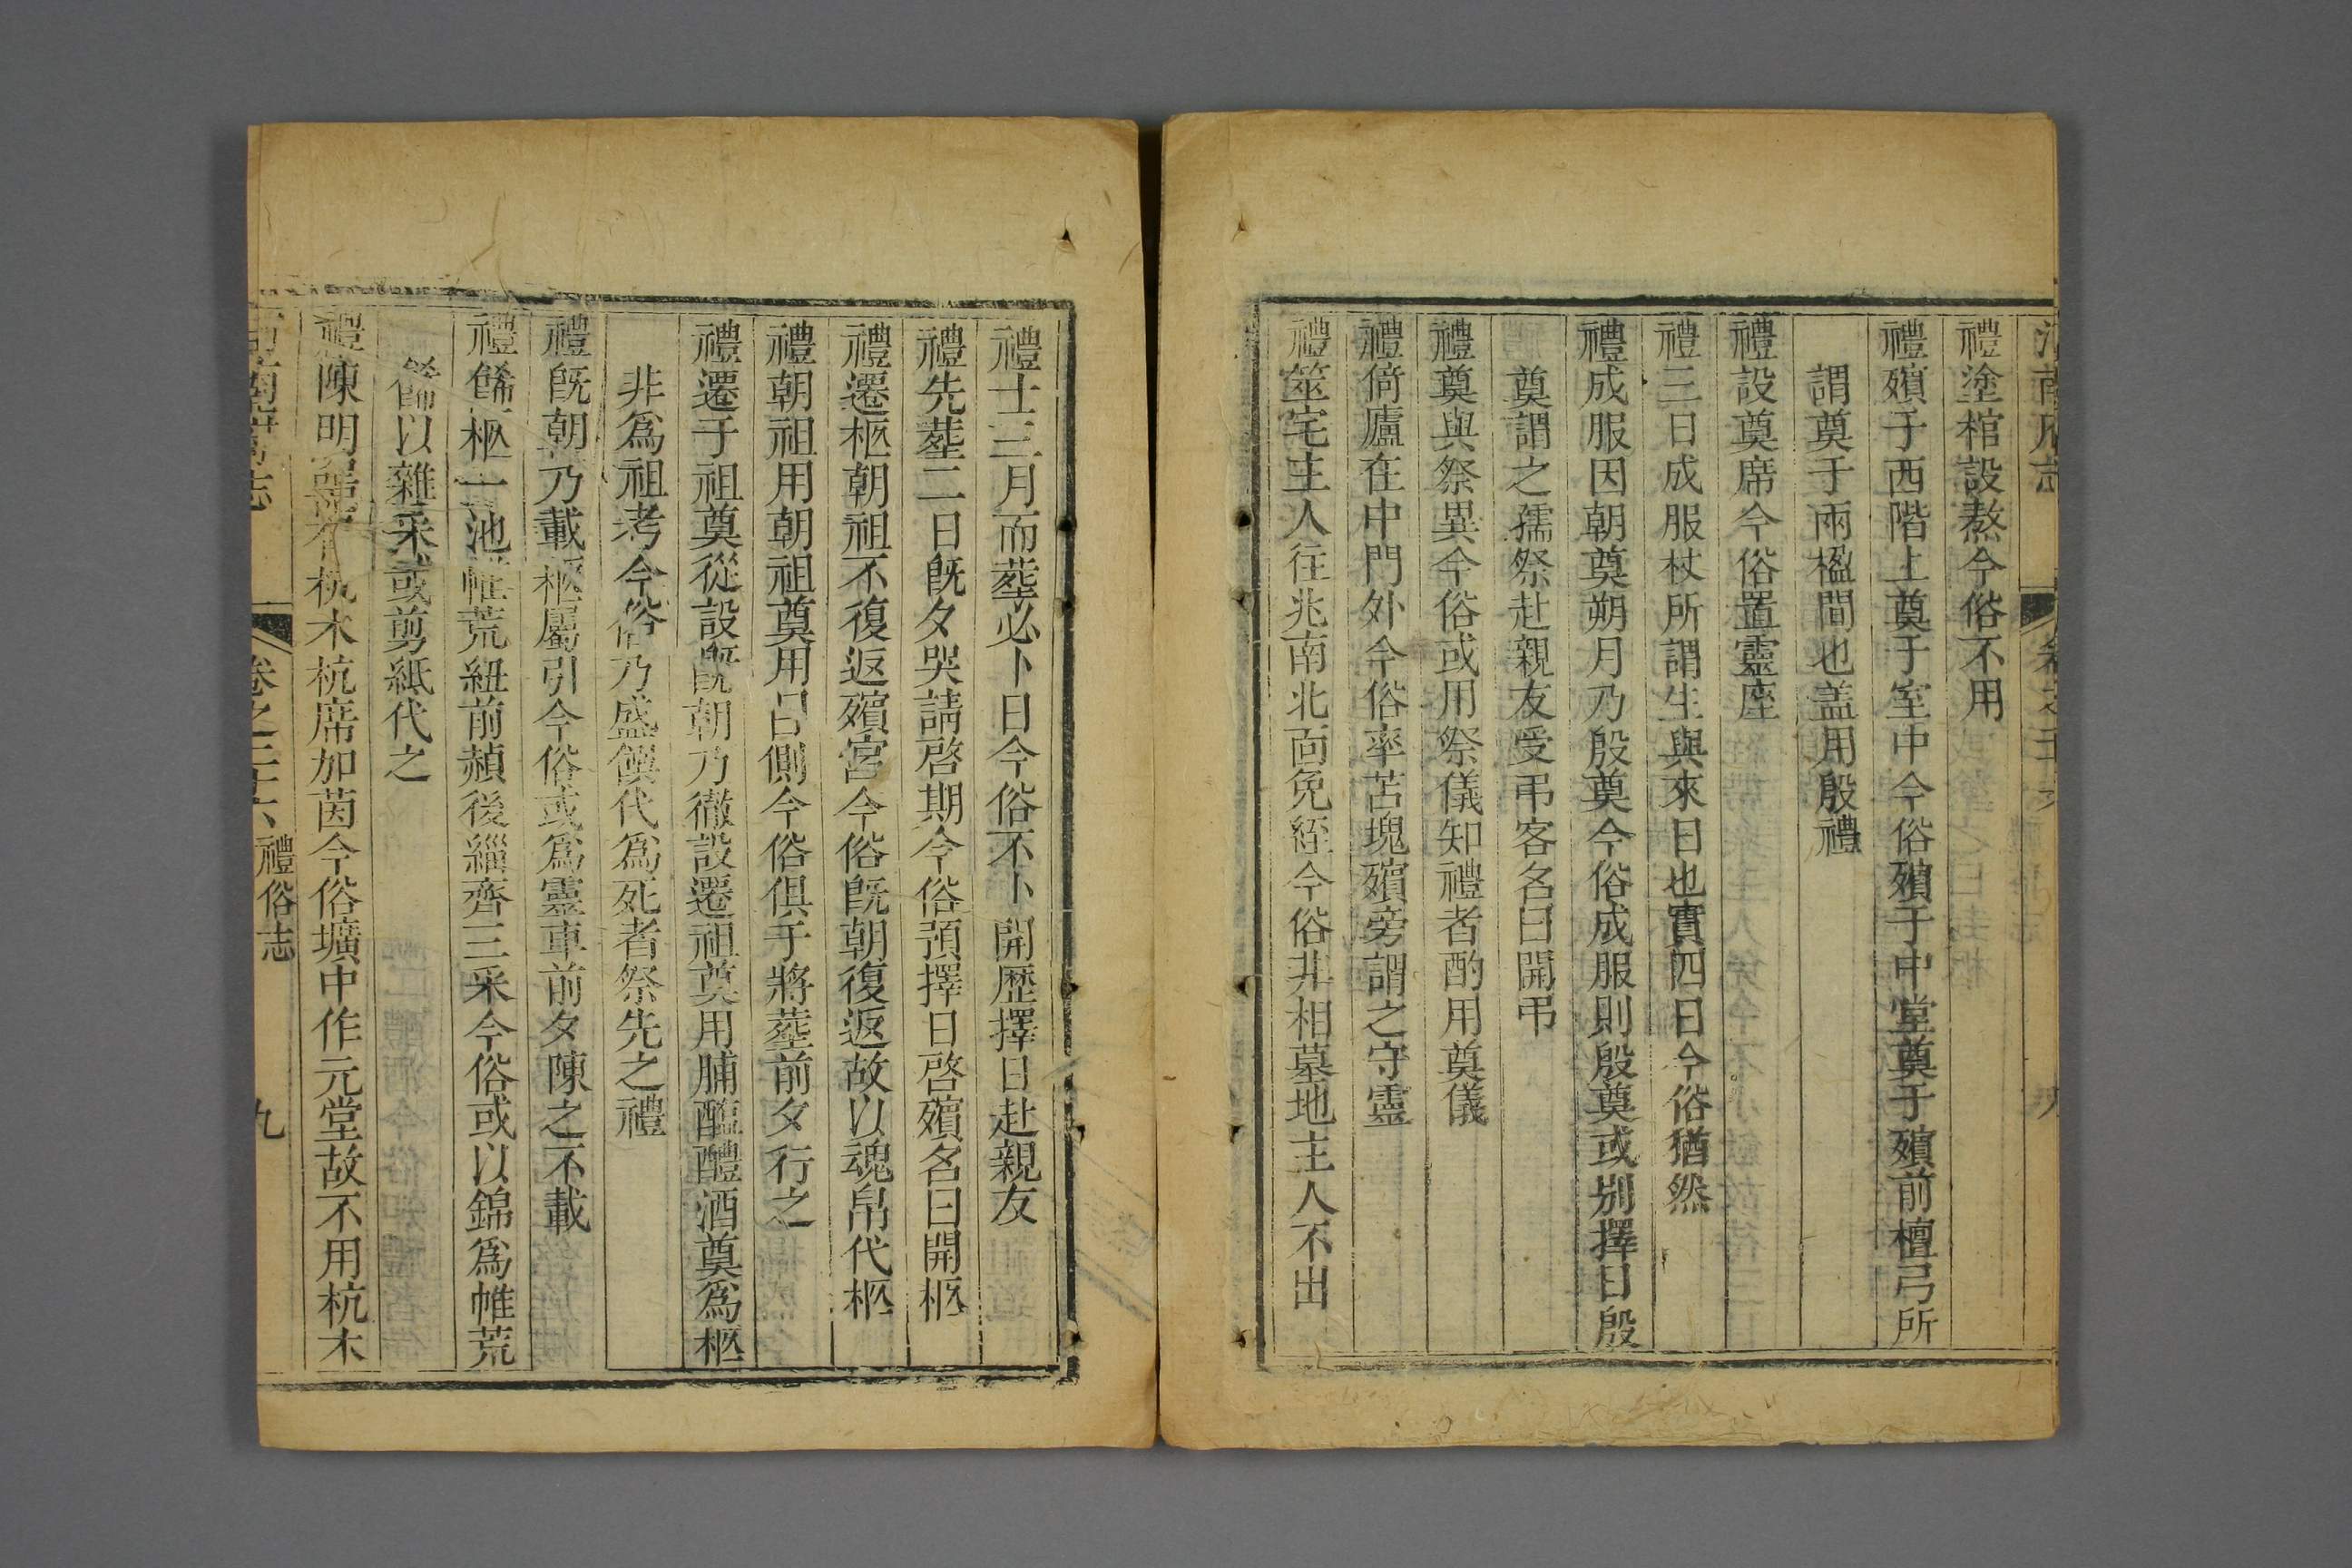 禮塗棺設熬今俗不用
禮殯于西階上奠于室中今俗殯于中堂奠于殯前檀弓所
謂奠于兩楹間也盖用殷禮
禮設奠席今俗置靈座
禮三日成服杖所謂生與來日也實四日今俗猶然
禮成服因朝奠朔月乃殷奠今俗成服則殷奠或別擇日殷
奠謂之孺祭赴親友受弔客名曰開弔
禮奠與祭異今俗或用祭儀知禮者酌用奠儀
禮倚廬在中門外今俗率苫塊殯旁謂之守靈
禮筮宅主人往兆南北面免絰今俗非相墓地主人不出
禮士三月而塟必卜日今俗不卜開歴擇日赴親友
禮先塟二日旣夕哭請啓期今俗預擇日啓殯名曰開柩
禮遷柩朝祖不復返殯宮今俗旣朝復返故以魂帛代柩
禮朝祖用朝祖奠用日側今俗俱于將塟前夕行之
禮遷于祖奠從設旣朝乃徹設遷祖奠用脯醢醴酒奠爲柩
非爲祖考今俗乃盛饌代爲死者祭先之禮
禮旣朝乃載柩屬引今俗或爲靈車前夕陳之不載
禮飾柩一池帷荒紐前赬後緇齊三采今俗或以錦爲帷荒
飾以雜采或剪紙代之
禮陳明器有杭木杭席加茵今俗壙中作元堂故不用杭木
卷之三十六 禮俗志 九